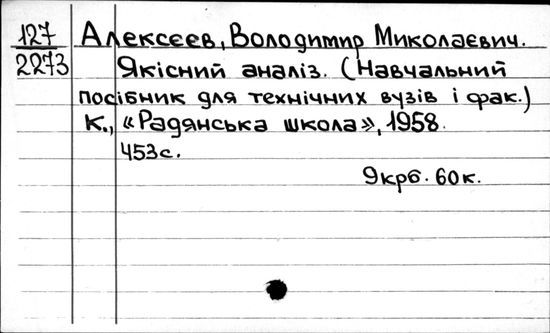 127
2273
Алексеев, Володимир Миколаєвич.
Якісний аналіз. (Навчальний
посібник для технічних вузів і фак.)
К., «Радянська школа», 1958.
453с.
9крб. 60к.